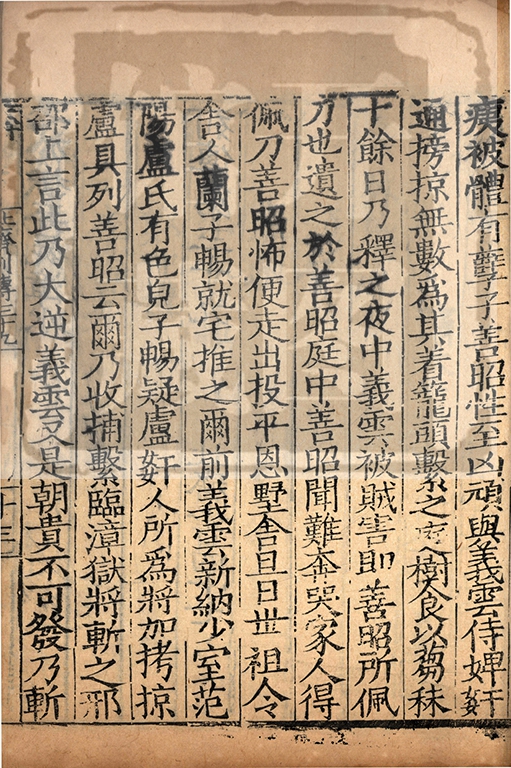 痍被體有孽子善昭性至凶頑與義雲侍婢奸
通搒掠無數為其着籠頭繫之庭樹食以蒭秣
十餘日乃釋之夜中義雲被賊害即善昭所佩
刀也遺之於善昭庭中善昭聞難奔哭家人得
佩刀善昭怖便走出投平恩墅舍旦日世祖令
舍人蘭子暢就宅推之爾前義雲新納少室范
陽盧氏有色皃子暢疑盧姦人所爲將加拷掠
盧具列善昭云爾乃收捕繫臨漳獄將斬之邢
邵上言此乃大逆義雲又是朝貴不可發乃斬
北齊列傳三十九
十三